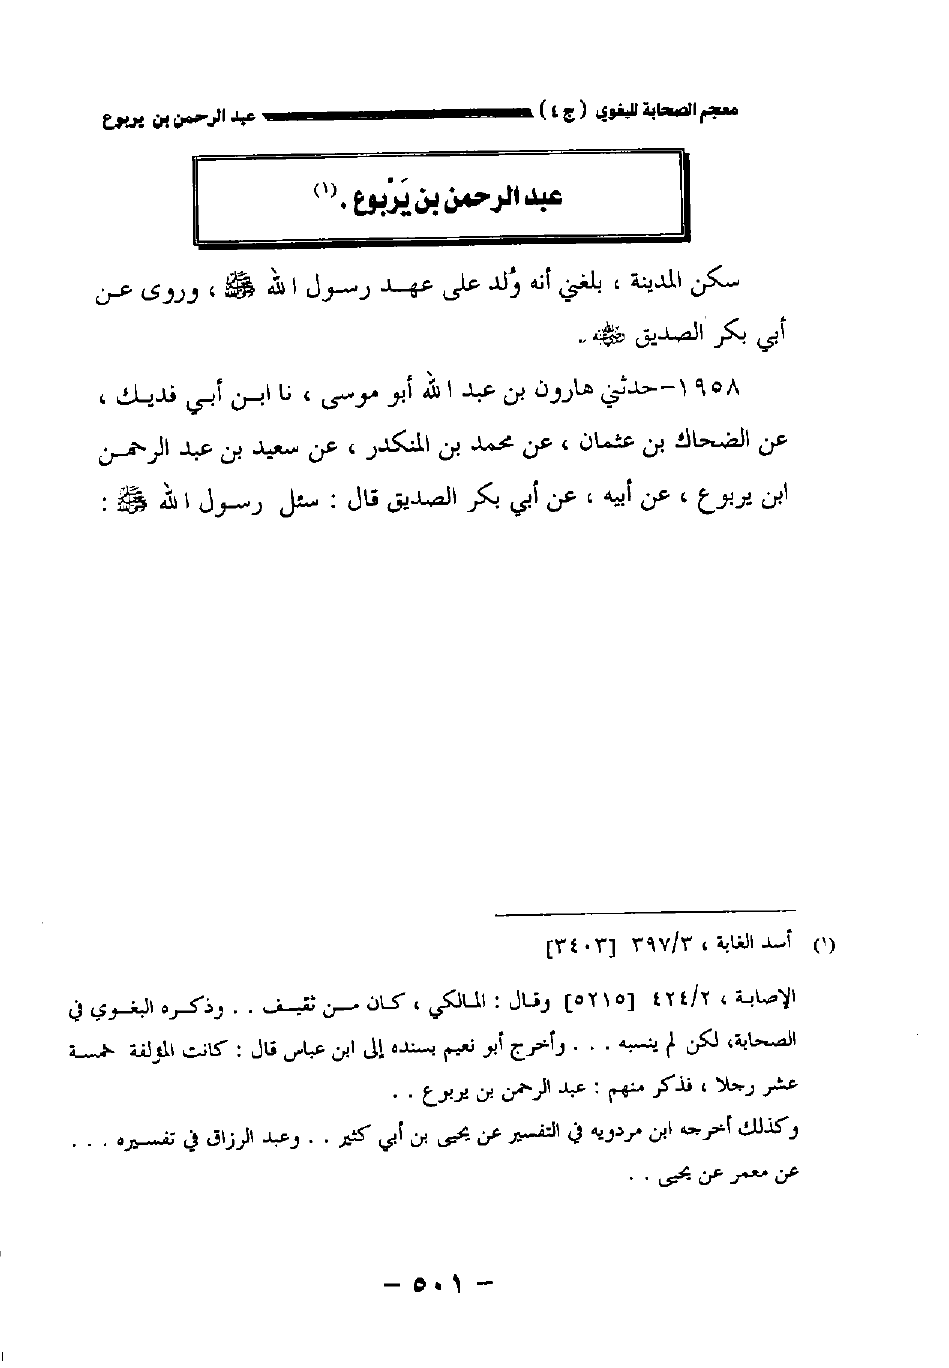 معجم الصحابة للبغوي (ج ٤) عبد الرحمن بن يربوع
عبد الرحمن بن يَرْبوع . (١)
سكن المدينة ، بلغني أنه وُلد على عهد رسول الله ﷺ ، وروى عن
أبي بكر الصديق رضي الله عنه .
١٩٥٨-حدثني هارون بن عبد الله أبو موسى ، نا ابن أبي فديك ،
عن الضحاك بن عثمان ، عن محمد بن المنكدر ، عن سعيد بن عبد الرحمن
ابن يربوع ، عن أبيه ، عن أبي بكر الصديق قال : سئل رسول الله ﷺ :
(١) أسد الغابة ، ٣٩٧/٣ [٣٤٠٣]
الإصابة ، ٤٢٤/٢ [٥٢١٥] وقال : المالكي ، كان من ثقيف . . وذكره البغوي في
الصحابة، لكن لم ينسبه . . . وأخرج أبو نعيم بسنده إلى ابن عباس قال : كانت المؤلفة خمسة
عشر رجلا ، فذكر منهم : عبد الرحمن بن يربوع . .
وكذلك أخرجه ابن مردويه في التفسير عن يحيى بن أبي كثير . . وعبد الرزاق في تفسيره . . .
عن معمر عن يحيى . .
- ٥٠١ -